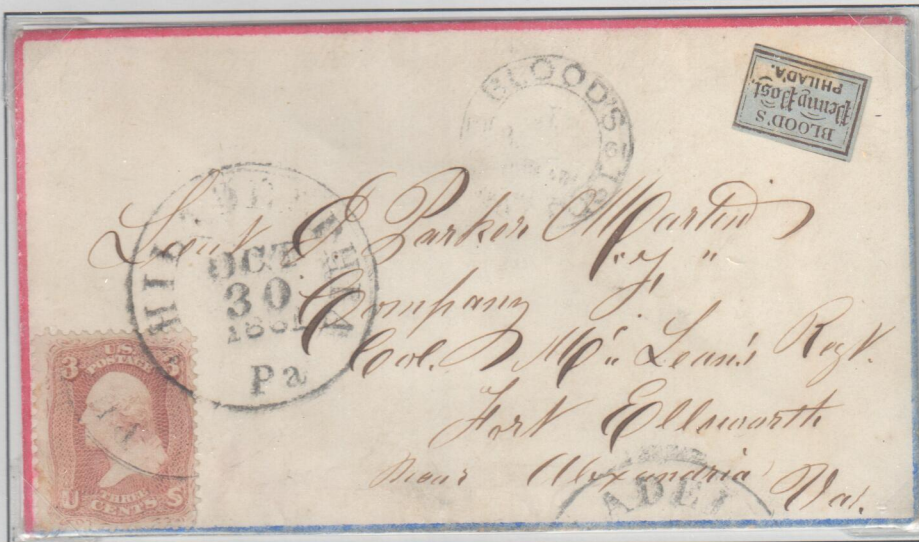 BLOOD'S
Penny Post,
PHILAD'A.
BLOOD'S
PHILADELPHIA
OCT
30
1861
Pa
Lieut E Parker Martin
Company "F"
Col. Mc Lean's Regt.
Fort Ellsworth
near Alexandria Va.
ADEL
3 U.S. 3
POSTAGE
U THREE S
CENTS